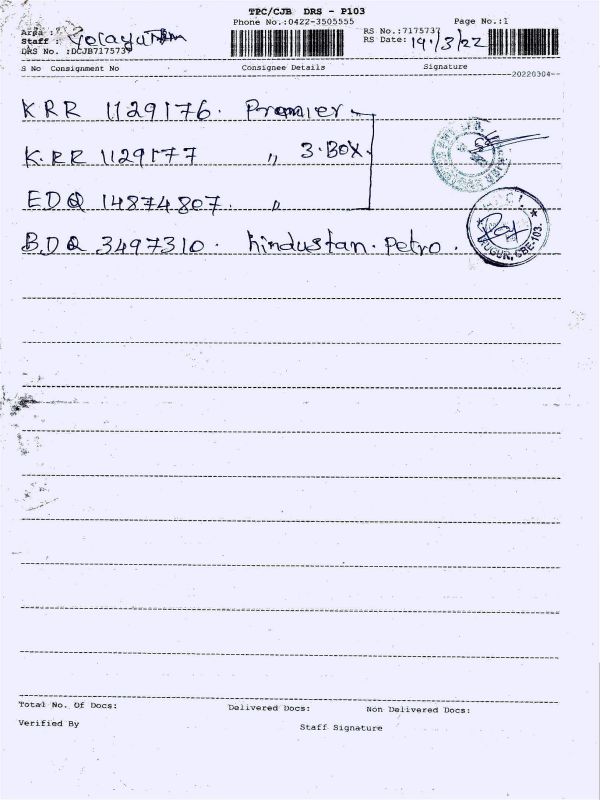 TPC/CJB DRS - P103
Phone No.:0422-3505555
Page No.:1
Area :
Staff :
DRS No. :DCJB7175737
RS No.:7175737
RS Date: 19/3/22
S No Consignment No Consignee Details Signature
20220304
KRR 1129176. Premier
K.RR 1129177 " 3.BOX.
EDQ 14874807. "
BDQ 3497310. hindustan. Petro.
CBE-103.
Total No. Of Docs: Delivered Docs: Non Delivered Docs:
Verified By Staff Signature